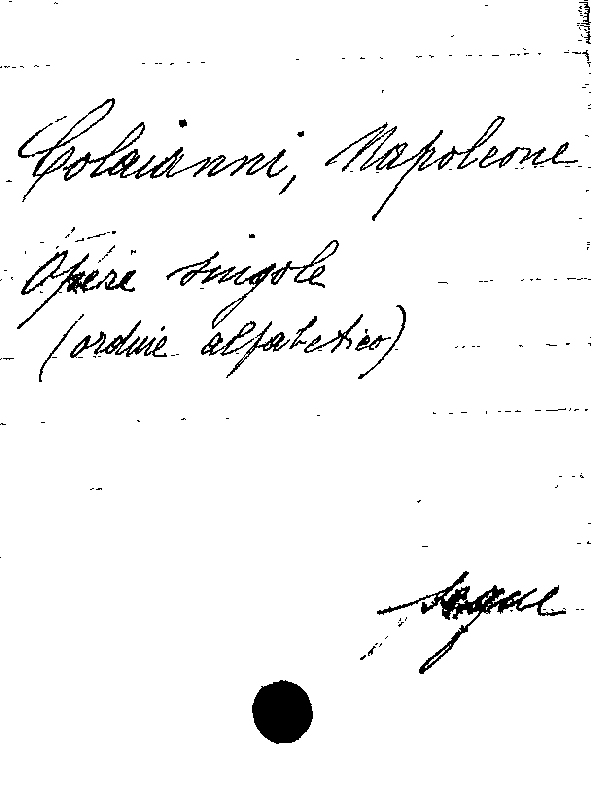 Colaianni, Napoleone
Opere singole
(ordine alfabetico)
segue